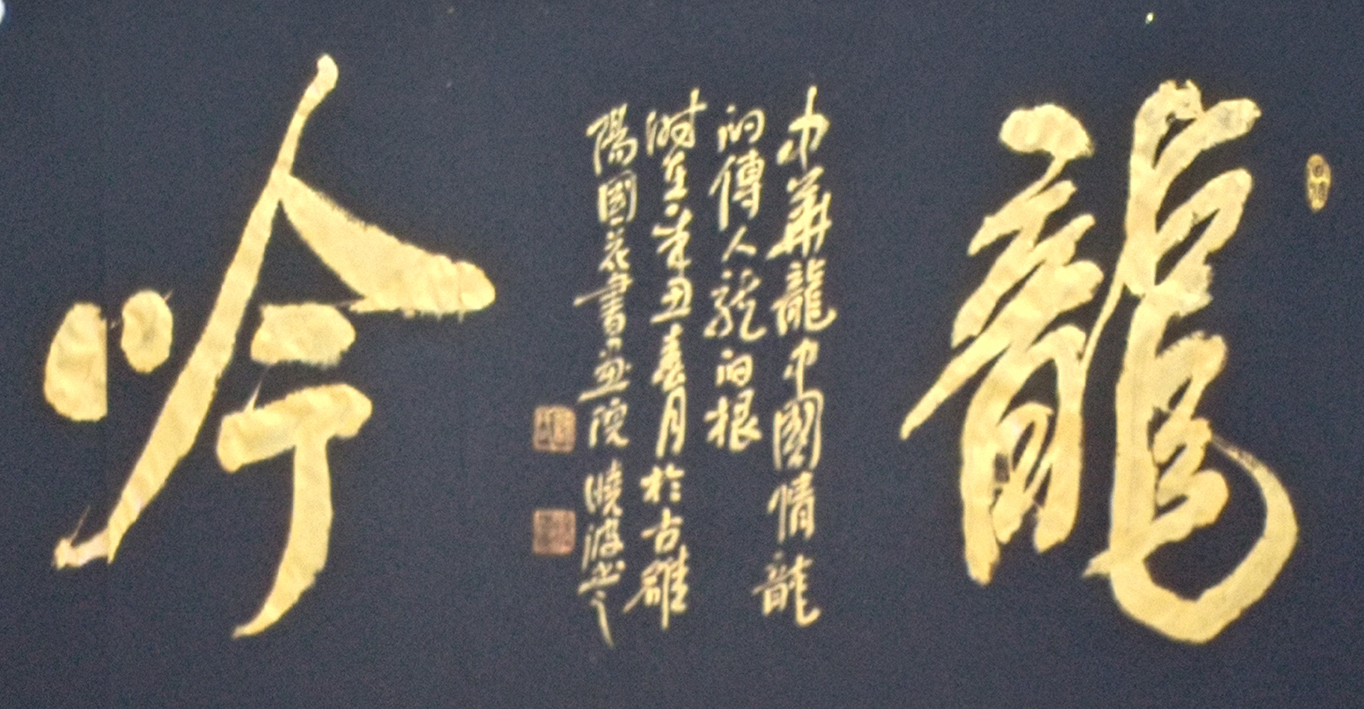 龍
中華龍中國情龍
的傳人龍的根
時在辛丑春月於古雒
陽國花書画院 曉波书
吟